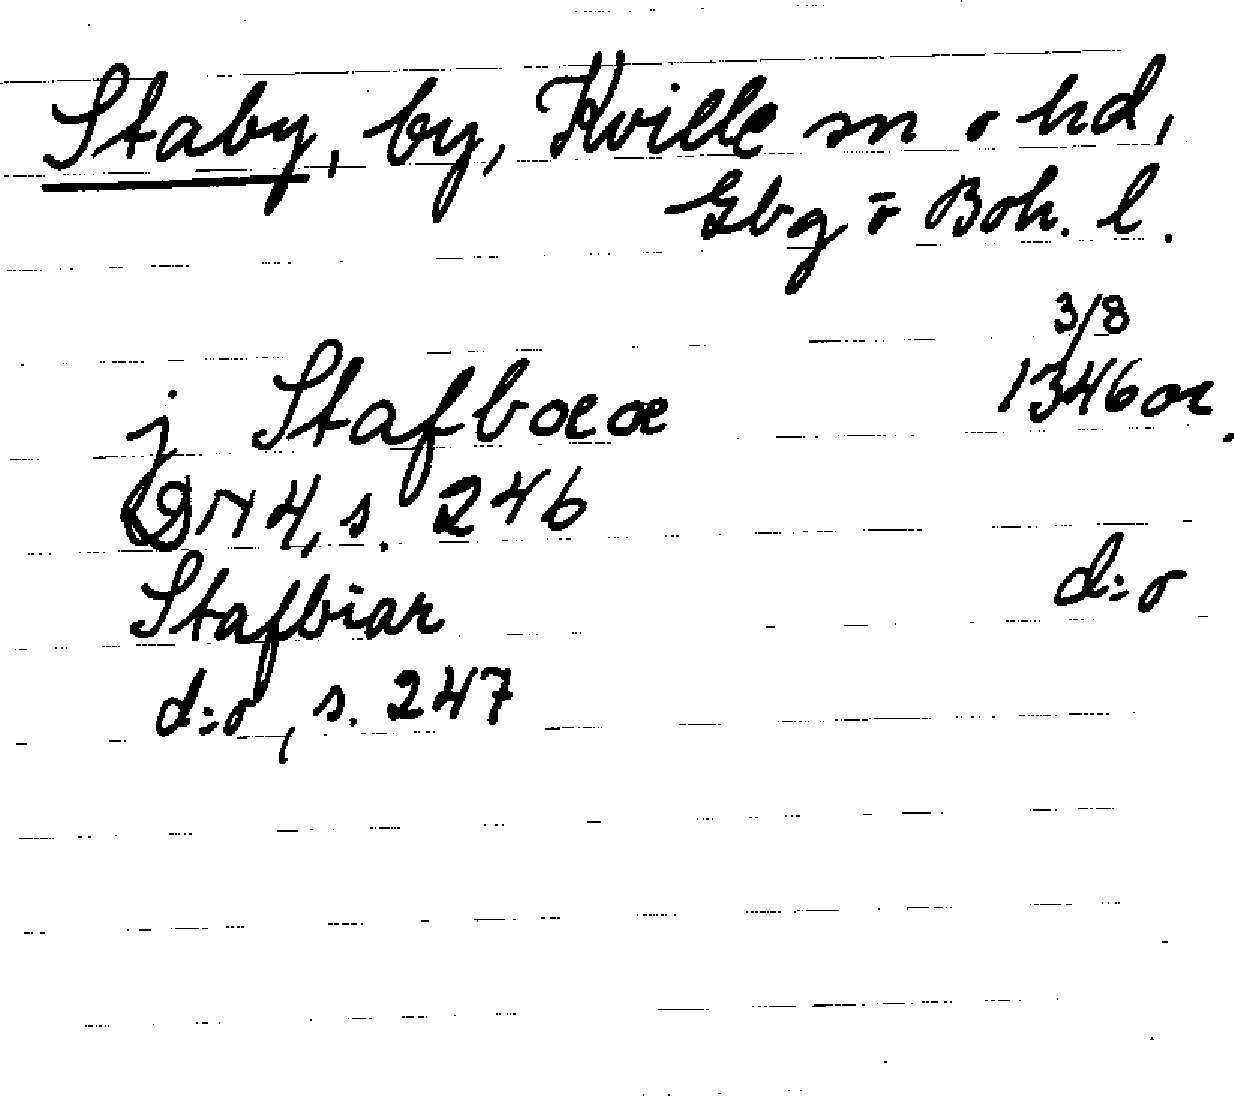 Staby, by, Kville sn o hd,
Gbg o Boh. l.
3/8
j Stafbœœ 1346 or.
DN 4, s. 246
Stafbiar d:o
d:o, s. 247